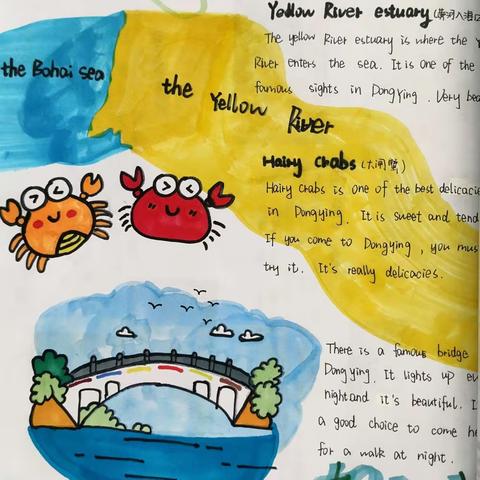 Yellow River estuary (黄河入海口
The yellow River estuary is where the Y
River enters the sea. It is one of the
famous sights in DongYing. Very bea
the Bohai sea
the Yellow River
Hairy Crabs (大闸蟹)
Hairy Crabs is one of the best delicacie
in Dongying. It is sweet and tend
If you come to Dongying, you mus
try it. It's really delicacies.
There is a famous bridge
Dongying. It lights up ev
night and it's beautiful. I
a good choice to come he
for a walk at night.